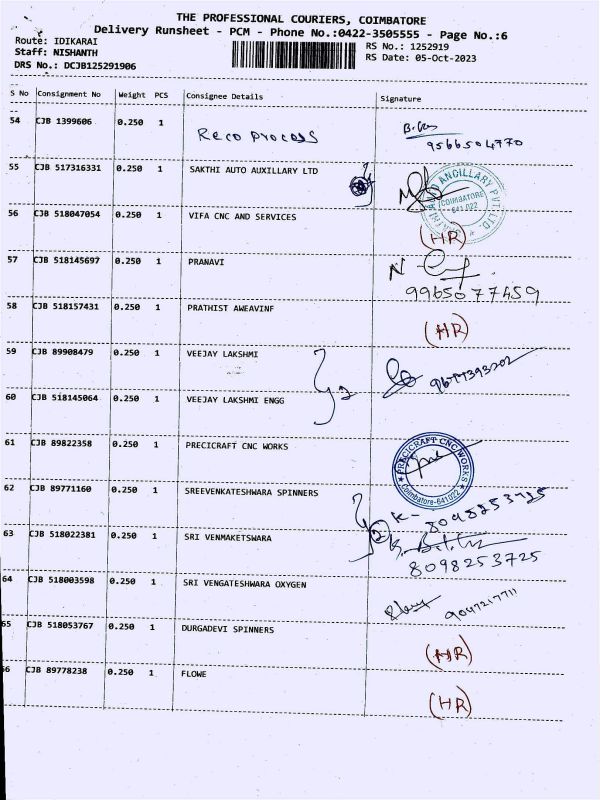 THE PROFESSIONAL COURIERS, COIMBATORE
Delivery Runsheet - PCM - Phone No.:0422-3505555 - Page No.:6
Route: IDIKARAI
RS No.: 1252919
Staff: NISHANTH
RS Date: 05-Oct-2023
DRS No.: DCJB125291906
S No Consignment No Weight PCS Consignee Details Signature
54 CJB 1399606 0.250 1 Reco process
9566504770
55 CJB 517316331 0.250 1 SAKTHI AUTO AUXILLARY LTD
ANCILLARY PVT. LTD.
COIMBATORE
641 022
56 CJB 518047054 0.250 1 VIFA CNC AND SERVICES (HR)
57 CJB 518145697 0.250 1 PRANAVI
9965077459
58 CJB 518157431 0.250 1 PRATHIST AWEAVINF (HR)
59 CJB 89908479 0.250 1 VEEJAY LAKSHMI
60 CJB 518145064 0.250 1 VEEJAY LAKSHMI ENGG
2
61 CJB 89822358 0.250 1 PRECICRAFT CNC WORKS
PRECICRAFT CNC WORKS
Coimbatore-641022
62 CJB 89771160 0.250 1 SREEVENKATESHWARA SPINNERS
8098253725
63 CJB 518022381 0.250 1 SRI VENMAKETSWARA
2
8098253725
64 CJB 518003598 0.250 1 SRI VENGATESHWARA OXYGEN
9047217711
65 CJB 518053767 0.250 1 DURGADEVI SPINNERS (HR)
66 CJB 89778238 0.250 1 FLOWE (HR)